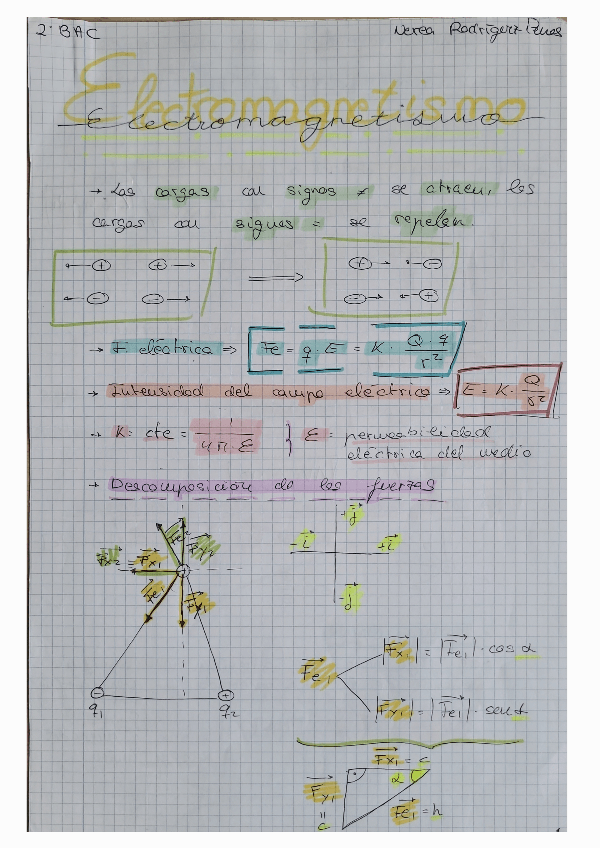 2º BAC
Nerea Rodríguez
Electromagnetismo
→ Las cargas con signos ≠ se atraen, las
cargas con signos = se repelen.
← + + →
+ → ← −
⟹
← − − →
− → ← +
→ F. eléctrica ⇒ Fe = q · E = K · Q · q / r²
→ Intensidad del campo eléctrico ⇒ E = K · Q / r²
→ K: cte = 1 / 4π·ε } ε = permeabilidad
eléctrica del medio
→ Descomposición de las fuerzas
+j
-i
+i
-j
Fe2
Fy2
Fx2 = Fx1
+
Fe1
Fy1
−
+
q1
q2
Fe1
|Fx1| = |Fe1| · cos α
|Fy1| = |Fe1| · sen α
Fx1 = c
Fy1
α
=
c
Fe1 = h